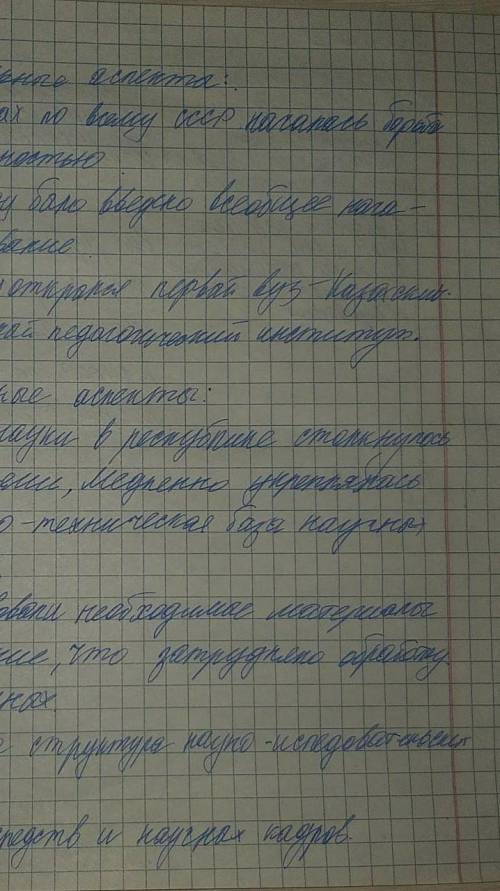 вные аспекта:
ах по всему СССР началась борьба
ностью
у было введено всеобщее нача-
вание
открылся первый вуз-Казахский
ный педагогический институт.
ные аспекты:
науки в республике столкнулось
ями, медленно укреплялась
о-техническая база научных
овали необходимые материалы
ние, что затрудняло обработку
нных.
е структура научно-исследовательских
средств и научных кадров.